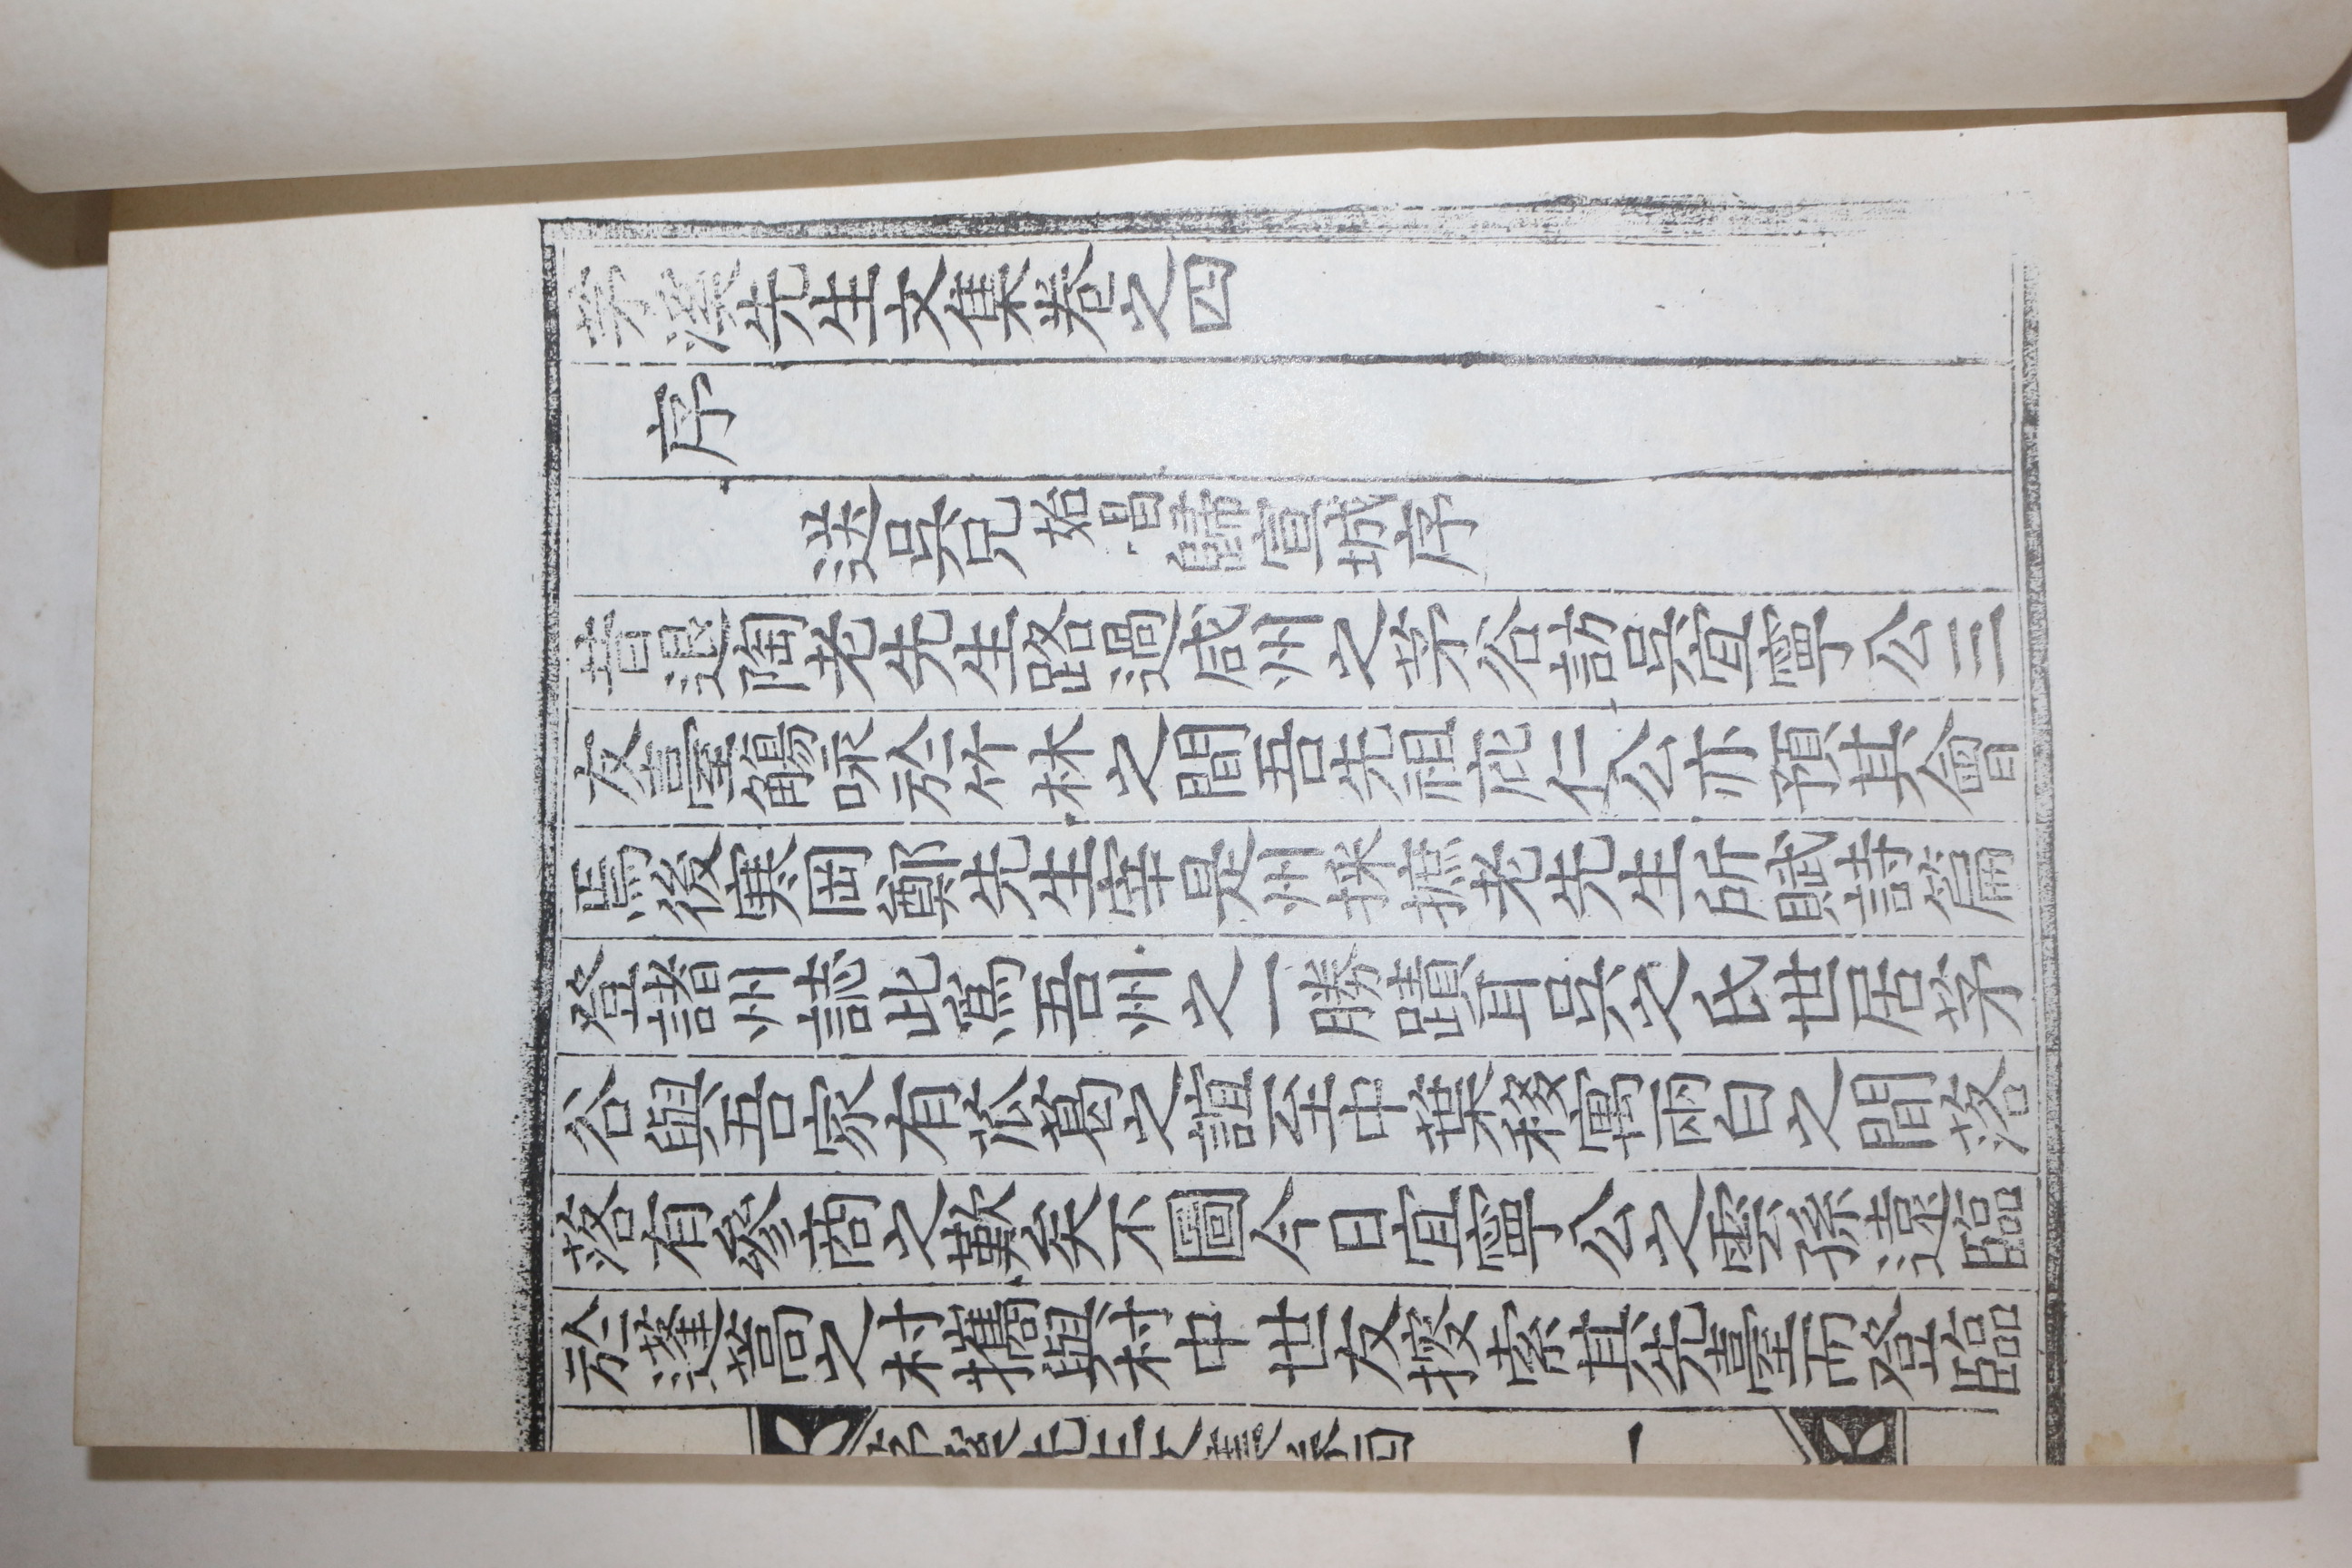 茅溪先生文集卷之四
序
送吳兄始昌歸宣城序
昔退陶老先生路過咸州之茅谷訪吳宜寧公三
友臺觴咏於竹林之間吾先祖庇仁公亦預其會
焉後寒岡鄭先生宰是州採摭老先生所賦詩篇
登諸州誌此爲吾州之一勝蹟耳吳之氏世居茅
谷與吾家有苽葛之誼至中葉移寓兩白之間落
落有參商之歎矣不圖今日宜寧公之雲孫遠臨
於蓬蒿之村攜與村中世友搜索其先臺而登臨
茅溪先生文集卷四 一